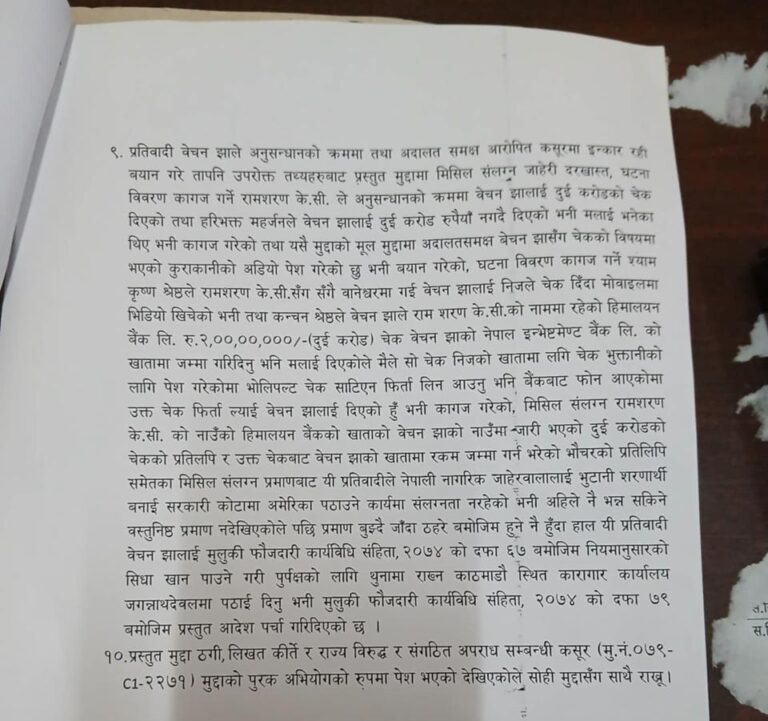 ९. प्रतिवादी वेचन झाले अनुसन्धानको क्रममा तथा अदालत समक्ष आरोपित कसूरमा इन्कार रही
बयान गरे तापनि उपरोक्त तथ्यहरुबाट प्रस्तुत मुद्दामा मिसिल संलग्न जाहेरी दरखास्त, घटना
विवरण कागज गर्ने रामशरण के.सी. ले अनुसन्धानको क्रममा वेचन झालाई दुई करोडको चेक
दिएको तथा हरिभक्त महर्जनले वेचन झालाई दुई करोड रुपैयाँ नगदै दिएको भनी मलाई भनेका
थिए भनी कागज गरेको तथा यसै मुद्दाको मूल मुद्दामा अदालतसमक्ष बेचन झासँग चेकको विषयमा
भएको कुराकानीको अडियो पेश गरेको छु भनी बयान गरेको, घटना विवरण कागज गर्ने श्याम
कृष्ण श्रेष्ठले रामशरण के.सी.सँग सँगै वानेश्वरमा गई वेचन झालाई निजले चेक दिँदा मोवाइलमा
भिडियो खिचेको भनी तथा कन्चन श्रेष्ठले वेचन झाले राम शरण के.सी.को नाममा रहेको हिमालयन
बैंक लि. रु.२,००,००,०००/-(दुई करोड) चेक वेचन झाको नेपाल इन्भेष्टमेण्ट बैंक लि. को
खातामा जम्मा गरिदिनु भनि मलाई दिएकोले मैले सो चेक निजको खातामा लगि चेक भुक्तानीको
लागि पेश गरेकोमा भोलिपल्ट चेक साटिएन फिर्ता लिन आउनु भनि बैंकबाट फोन आएकोमा
उक्त चेक फिर्ता ल्याई वेचन झालाई दिएको हुँ भनी कागज गरेको, मिसिल संलग्न रामशरण
के.सी. को नाउँको हिमालयन बैंकको खाताको वेचन झाको नाउँमा जारी भएको दुई करोडको
चेकको प्रतिलपि र उक्त चेकबाट वेचन झाको खातामा रकम जम्मा गर्न भरेको भौचरको प्रतिलिपि
समेतका मिसिल संलग्न प्रमाणबाट यी प्रतिवादीले नेपाली नागरिक जाहेरवालालाई भुटानी शरणार्थी
बनाई सरकारी कोटामा अमेरिका पठाउने कार्यमा संलग्नता नरहेको भनी अहिले नै भन्न सकिने
वस्तुनिष्ठ प्रमाण नदेखिएकोले पछि प्रमाण बुझ्दै जाँदा ठहरे बमोजिम हुने नै हुँदा हाल यी प्रतिवादी
वेचन झालाई मुलुकी फौजदारी कार्यविधि संहिता,२०७४ को दफा ६७ बमोजिम नियमानुसारको
सिधा खान पाउने गरी पुर्पक्षको लागि थुनामा राख्न काठमाडौ स्थित कारागार कार्यालय
जगन्नाथदेवलमा पठाई दिनु भनी मुलुकी फौजदारी कार्यविधि संहिता, २०७४ को दफा ७९
बमोजिम प्रस्तुत आदेश पर्चा गरिदिएको छ ।
१०.प्रस्तुत मुद्दा ठगी,लिखत कीर्ते र राज्य विरुद्ध र संगठित अपराध सम्बन्धी कसूर (मु.नं.०७९-
C1-२२७१) मुद्दाको पुरक अभियोगको रुपमा पेश भएको देखिएकोले सोही मुद्दासँग साथै राखू।